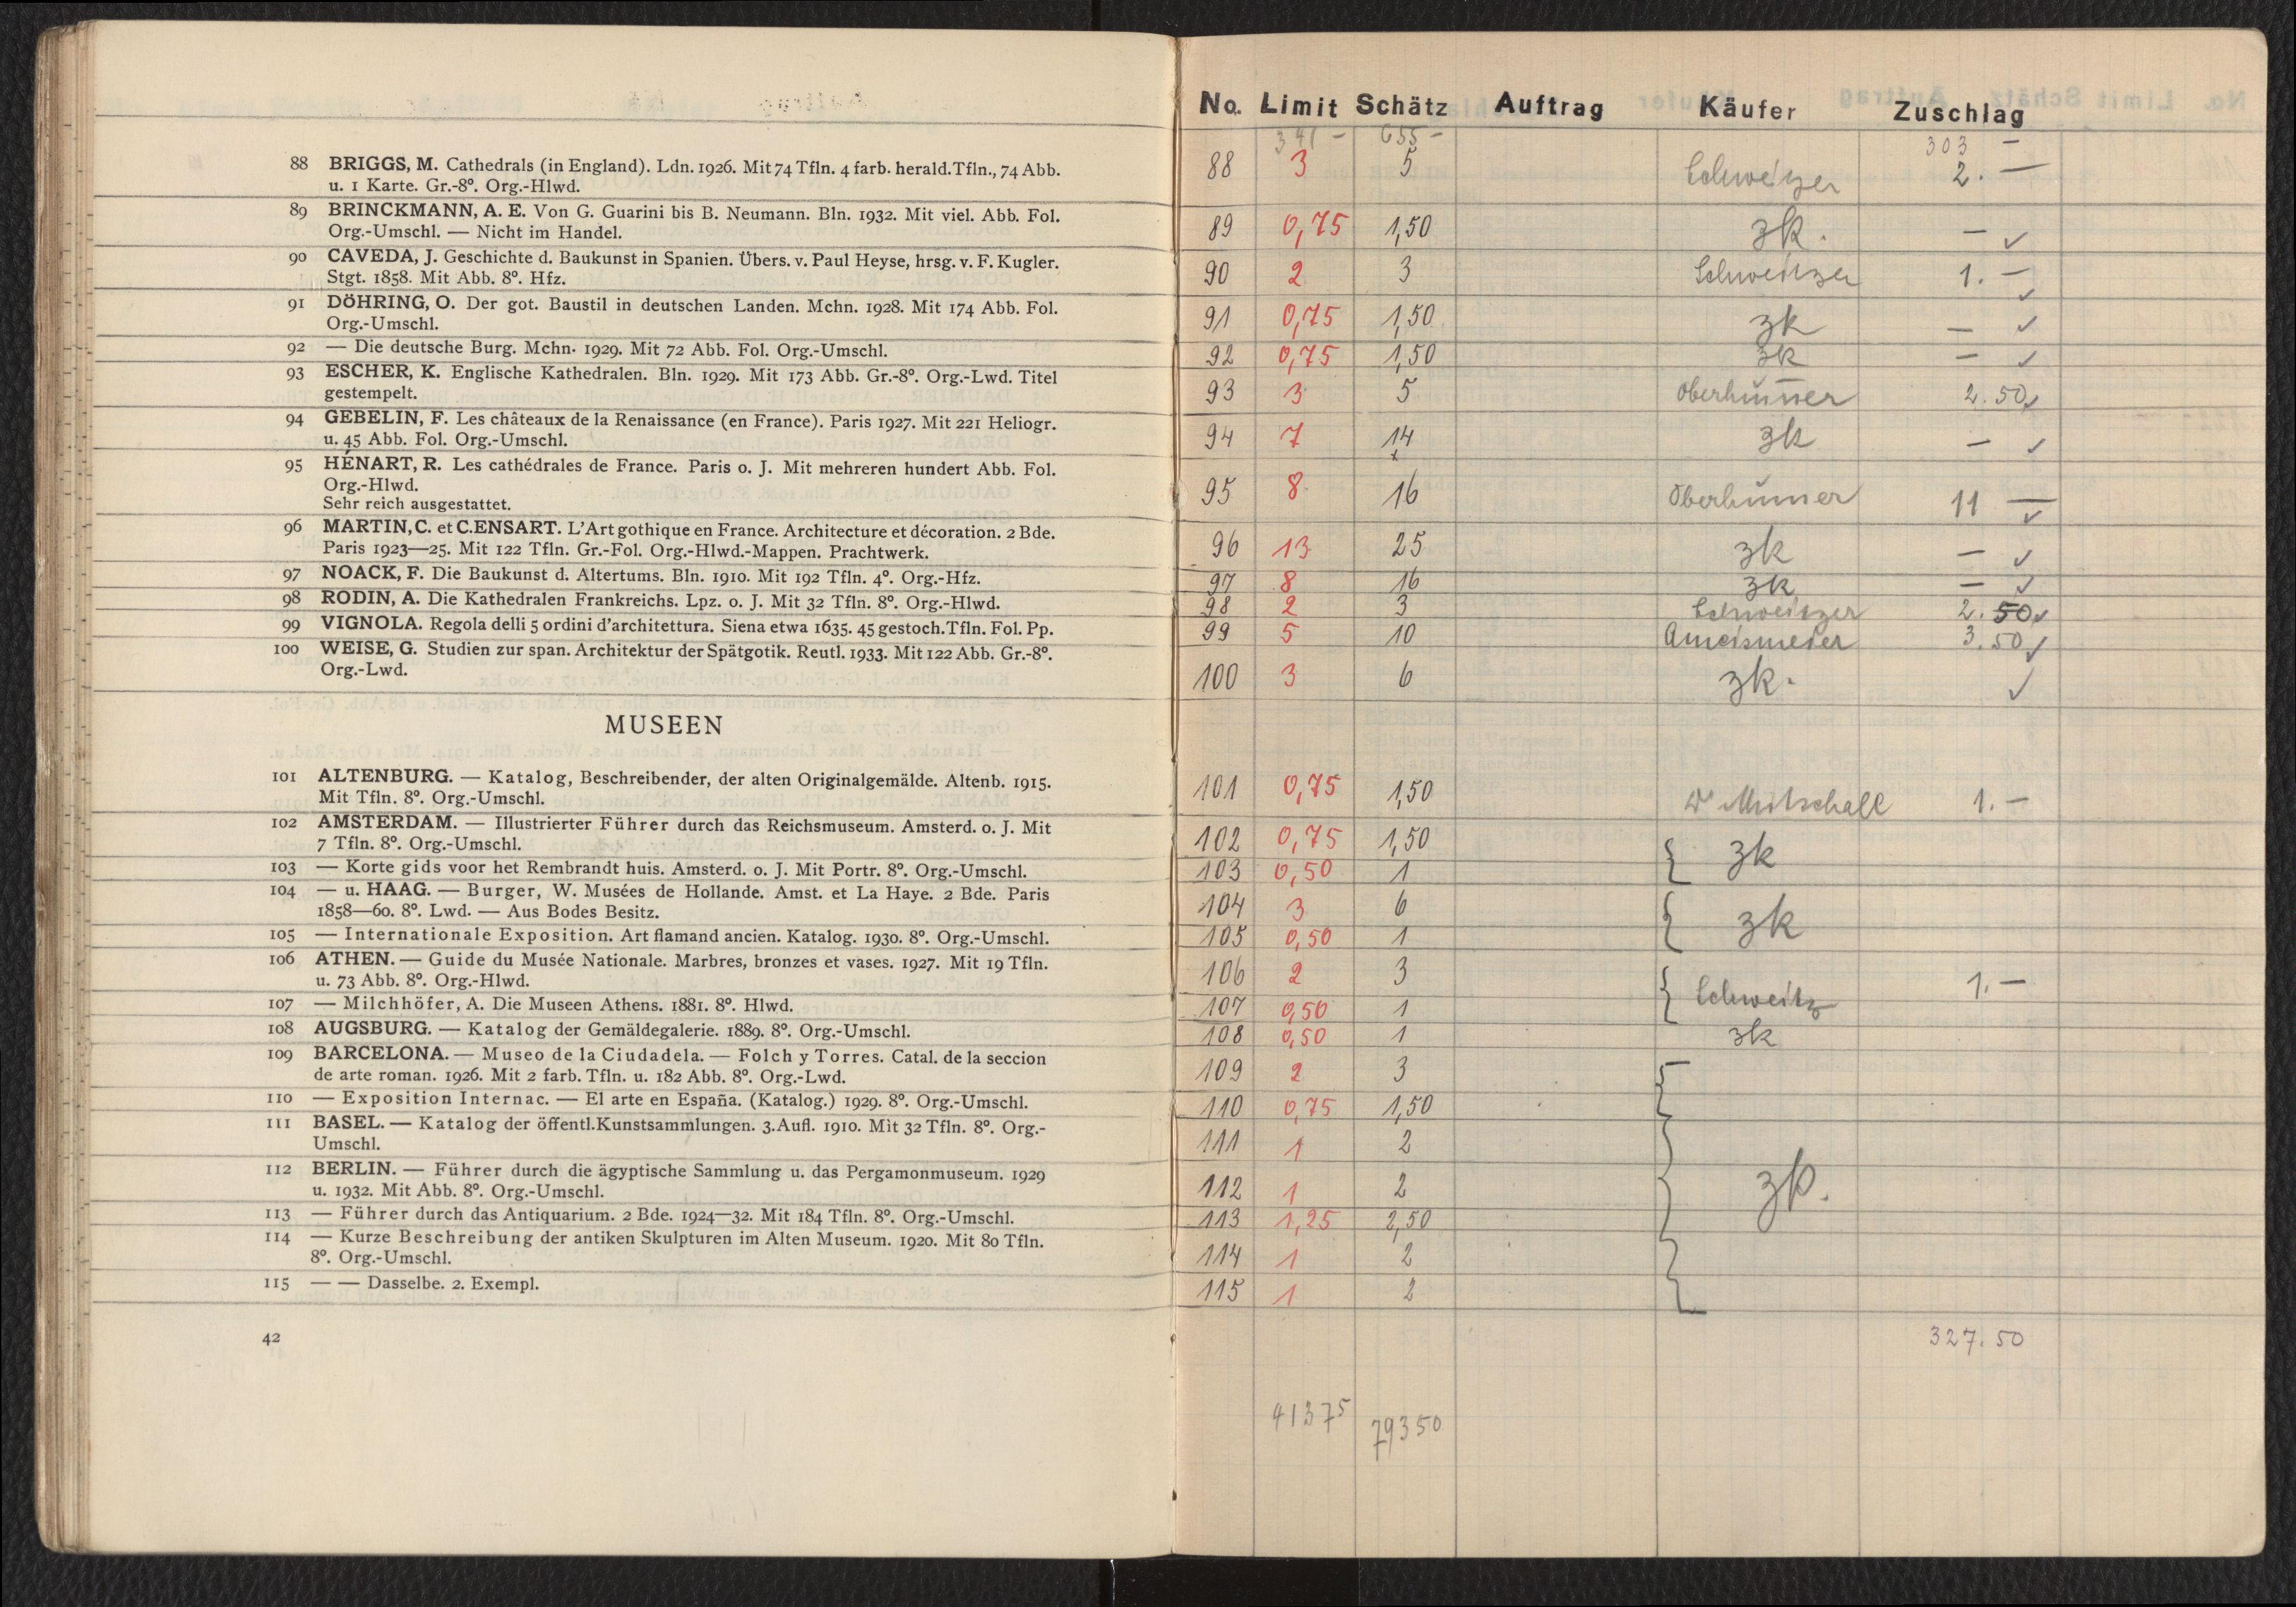 88 BRIGGS, M. Cathedrals (in England). Ldn. 1926. Mit 74 Tfln. 4 farb. herald. Tfln., 74 Abb.
u. 1 Karte. Gr.-8°. Org.-Hlwd.
89 BRINCKMANN, A. E. Von G. Guarini bis B. Neumann. Bln. 1932. Mit viel. Abb. Fol.
Org.-Umschl. — Nicht im Handel.
90 CAVEDA, J. Geschichte d. Baukunst in Spanien. Übers. v. Paul Heyse, hrsg. v. F. Kugler.
Stgt. 1858. Mit Abb. 8°. Hfz.
91 DÖHRING, O. Der got. Baustil in deutschen Landen. Mchn. 1928. Mit 174 Abb. Fol.
Org.-Umschl.
92 — Die deutsche Burg. Mchn. 1929. Mit 72 Abb. Fol. Org.-Umschl.
93 ESCHER, K. Englische Kathedralen. Bln. 1929. Mit 173 Abb. Gr.-8°. Org.-Lwd. Titel
gestempelt.
94 GEBELIN, F. Les châteaux de la Renaissance (en France). Paris 1927. Mit 221 Heliogr.
u. 45 Abb. Fol. Org.-Umschl.
95 HÉNART, R. Les cathédrales de France. Paris o. J. Mit mehreren hundert Abb. Fol.
Org.-Hlwd.
Sehr reich ausgestattet.
96 MARTIN, C. et C. ENSART. L'Art gothique en France. Architecture et décoration. 2 Bde.
Paris 1923—25. Mit 122 Tfln. Gr.-Fol. Org.-Hlwd.-Mappen. Prachtwerk.
97 NOACK, F. Die Baukunst d. Altertums. Bln. 1910. Mit 192 Tfln. 4°. Org.-Hfz.
98 RODIN, A. Die Kathedralen Frankreichs. Lpz. o. J. Mit 32 Tfln. 8°. Org.-Hlwd.
99 VIGNOLA. Regola delli 5 ordini d'architettura. Siena etwa 1635. 45 gestoch. Tfln. Fol. Pp.
100 WEISE, G. Studien zur span. Architektur der Spätgotik. Reutl. 1933. Mit 122 Abb. Gr.-8°.
Org.-Lwd.
MUSEEN
101 ALTENBURG. — Katalog, Beschreibender, der alten Originalgemälde. Altenb. 1915.
Mit Tfln. 8°. Org.-Umschl.
102 AMSTERDAM. — Illustrierter Führer durch das Reichsmuseum. Amsterd. o. J. Mit
7 Tfln. 8°. Org.-Umschl.
103 — Korte gids voor het Rembrandt huis. Amsterd. o. J. Mit Portr. 8°. Org.-Umschl.
104 — u. HAAG. — Burger, W. Musées de Hollande. Amst. et La Haye. 2 Bde. Paris
1858—60. 8°. Lwd. — Aus Bodes Besitz.
105 — Internationale Exposition. Art flamand ancien. Katalog. 1930. 8°. Org.-Umschl.
106 ATHEN. — Guide du Musée Nationale. Marbres, bronzes et vases. 1927. Mit 19 Tfln.
u. 73 Abb. 8°. Org.-Hlwd.
107 — Milchhöfer, A. Die Museen Athens. 1881. 8°. Hlwd.
108 AUGSBURG. — Katalog der Gemäldegalerie. 1889. 8°. Org.-Umschl.
109 BARCELONA. — Museo de la Ciudadela. — Folch y Torres. Catal. de la seccion
de arte roman. 1926. Mit 2 farb. Tfln. u. 182 Abb. 8°. Org.-Lwd.
110 — Exposition Internac. — El arte en España. (Katalog.) 1929. 8°. Org.-Umschl.
111 BASEL. — Katalog der öffentl. Kunstsammlungen. 3. Aufl. 1910. Mit 32 Tfln. 8°. Org.-
Umschl.
112 BERLIN. — Führer durch die ägyptische Sammlung u. das Pergamonmuseum. 1929
u. 1932. Mit Abb. 8°. Org.-Umschl.
113 — Führer durch das Antiquarium. 2 Bde. 1924—32. Mit 184 Tfln. 8°. Org.-Umschl.
114 — Kurze Beschreibung der antiken Skulpturen im Alten Museum. 1920. Mit 80 Tfln.
8°. Org.-Umschl.
115 — — Dasselbe. 2. Exempl.
42
No. Limit Schätz Auftrag Käufer Zuschlag
341 — 655 — 303 —
88 3 5 Schweitzer 2. —
89 0,75 1,50 zk. — ✓
90 2 3 Schweitzer 1. — ✓
91 0,75 1,50 zk — ✓
92 0,75 1,50 zk — ✓
93 3 5 Oberhummer 2.50 ✓
94 7 14 zk — ✓
95 8 16 Oberhummer 11 — ✓
96 13 25 zk — ✓
97 8 16 zk — ✓
98 2 3 Schweitzer 2.50 ✓
99 5 10 Ameismeier 3.50 ✓
100 3 6 zk. ✓
101 0,75 1,50 1. —
102 0,75 1,50 { zk
103 0,50 1
104 3 6 { zk
105 0,50 1
106 2 3 { Schweitz 1. —
107 0,50 1
108 0,50 1 zk
109 2 3
110 0,75 1,50
111 1 2
112 1 2 zk.
113 1,25 2,50
114 1 2
115 1 2
327.50
41375 79350